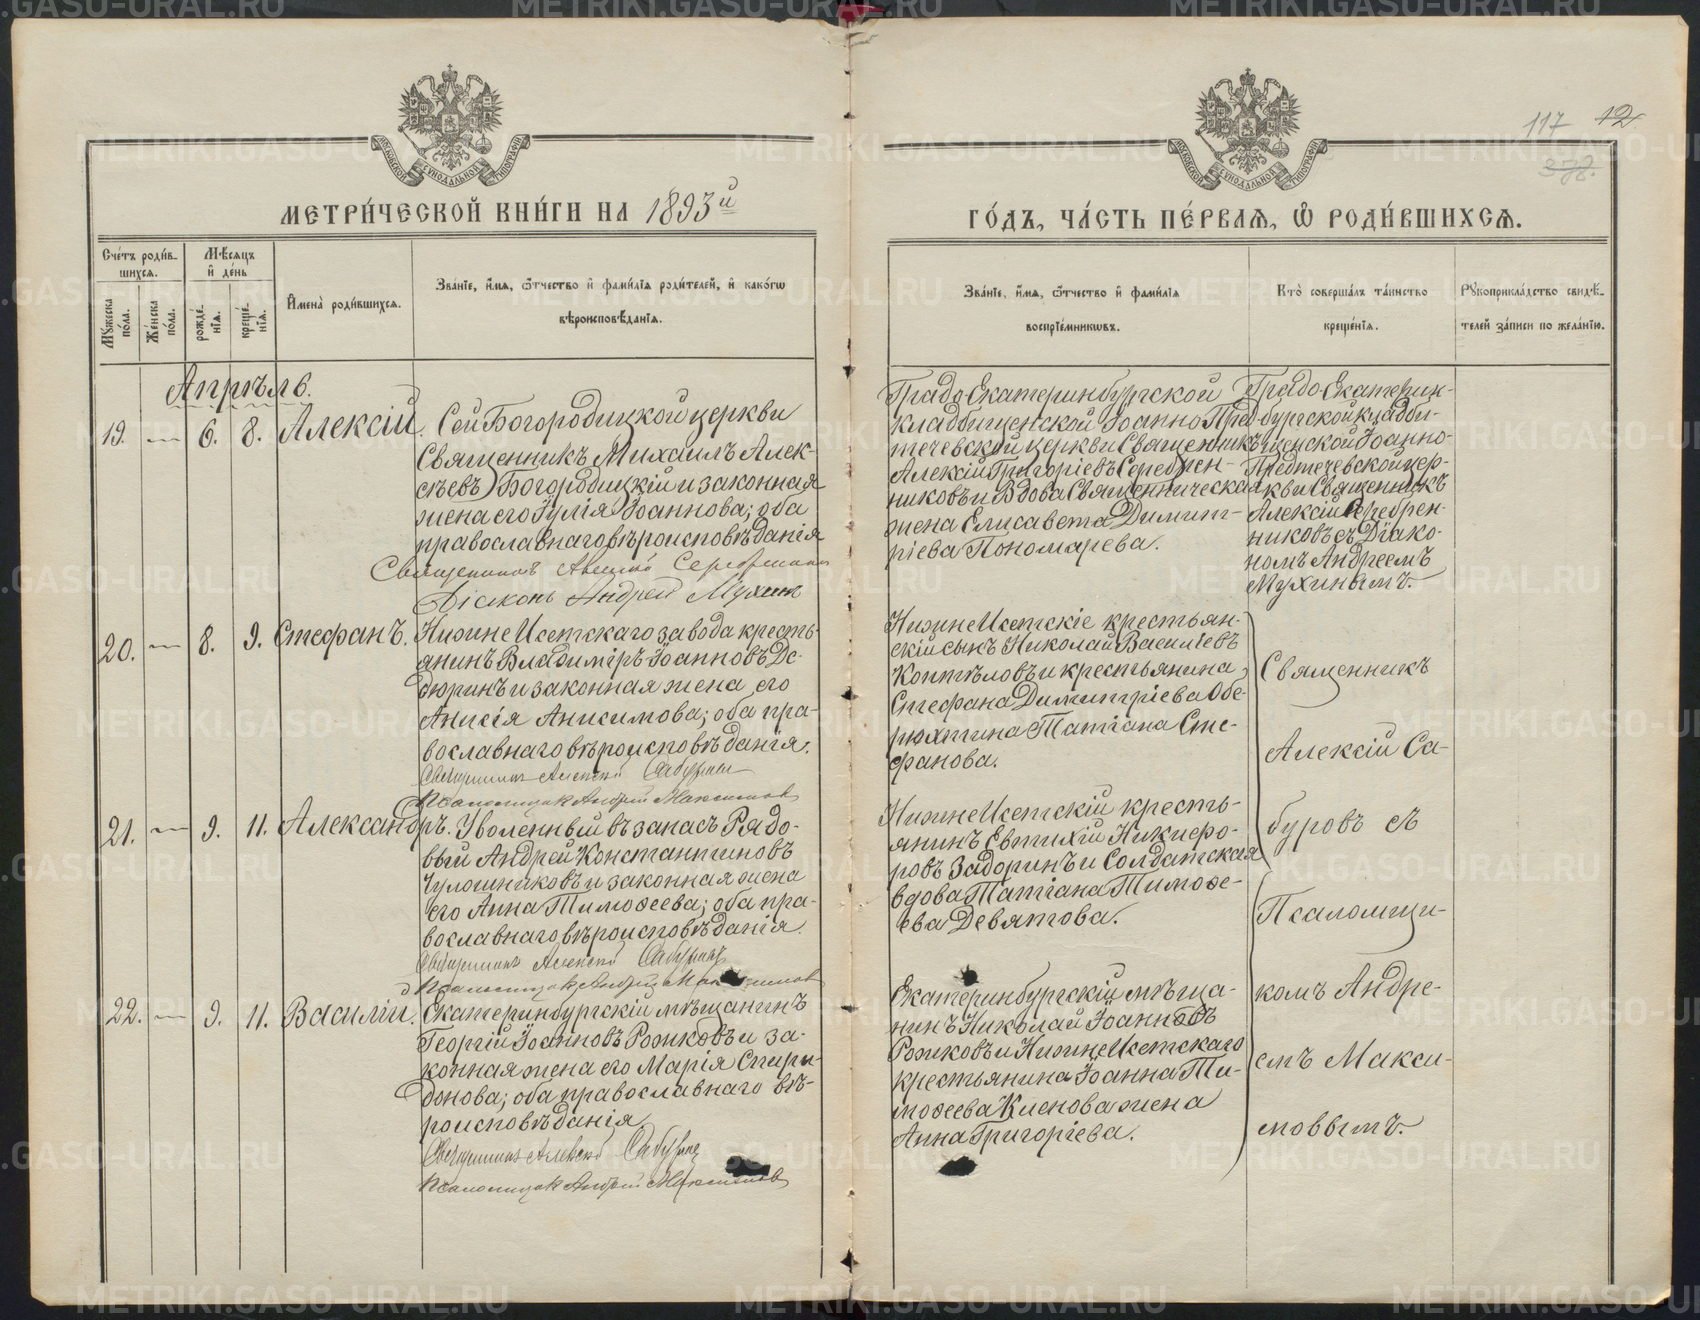 117 12
378.
МОСКОВСКОЙ СѴНОДАЛЬНОЙ ТИПОГРАФІИ
МОСКОВСКОЙ СѴНОДАЛЬНОЙ ТИПОГРАФІИ
МЕТРИ́ЧЕСКОЙ КНИ́ГИ НА 1893й
ГО́ДЪ, ЧА́СТЬ ПЕ́РВАѦ, Ѽ РОДИ́ВШИХСѦ.
Сче́тъ роди́в-
шихсѧ.
Мѣ́сѧцъ
и҆ де́нь
Мꙋ́жеска
по́ла.
Же́нска
по́ла.
рожде́-
нїѧ.
креще́-
нїѧ.
И҆мена̀ роди́вшихсѧ.
Зва́нїе, и҆́мѧ, ѻ҆́тчество и҆ фами́лїѧ роди́телей, и҆ како́гѡ
вѣроисповѣ́данїѧ.
Зва́нїе, и҆́мѧ, ѻ҆́тчество и҆ фами́лїѧ
воспрїе́мникѡвъ.
Кто̀ соверша́лъ та́инство
креще́нїѧ.
Рꙋкоприкла́дство свидѣ́-
телей за́писи по жела́нїю.
Апрѣль.
19. — 6. 8. Алексій.
Сей Богородицкой церкви
Священникъ Михаилъ Алек-
сѣевъ Богородицкій и законная
жена его Іулія Іоаннова; оба
православнаго вѣроисповѣданія
Священникъ Алексій Серебренниковъ
Діаконъ Андрей Мухинъ
Градо Екатеринбургской
кладбищенской Іоанно Пред-
течевской церкви Священникъ
Алексій Григоріевъ Серебрен-
никовъ и Вдова Священническая
жена Елисавета Димит-
ріева Пономарева.
Градо Екатерин-
бургской кладби-
щенской Іоанно-
Предтечевской цер-
кви Священникъ
Алексій Серебрен-
никовъ съ Діако-
номъ Андреемъ
Мухинымъ.
20. — 8. 9. Стефанъ.
Нижне Исетскаго завода кресть-
янинъ Владиміръ Іоанновъ Де-
дюринъ и законная жена его
Анисія Анисимова; оба пра-
вославнаго вѣроисповѣданія.
Священникъ Алексій Сабуровъ
Псаломщикъ Андрей Максимовъ
Нижне Исетскіе крестьян-
скій сынъ Николай Василіевъ
Коптѣловъ и крестьянина
Стефана Димитріева Обе-
рюхтина Татіана Сте-
фанова.
21. — 9. 11. Александръ.
Уволенный въ запасъ Рядо-
вый Андрей Константиновъ
Чулошниковъ и законная жена
его Анна Тимоѳеева; оба пра-
вославнаго вѣроисповѣданія.
Священникъ Алексій Сабуровъ
Псаломщикъ Андрей Максимовъ
Нижне Исетскій кресть-
янинъ Евтихій Никифо-
ровъ Задоринъ и Солдатская
вдова Татіана Тимоѳе-
ева Девятова.
22. — 9. 11. Василій.
Екатеринбургскій мѣщанинъ
Георгій Іоанновъ Рожковъ и за-
конная жена его Марія Спири-
донова; оба православнаго вѣ-
роисповѣданія.
Священникъ Алексій Сабуровъ
Псаломщикъ Андрей Максимовъ
Екатеринбургскій мѣща-
нинъ Николай Іоанновъ
Рожковъ и Нижне Исетскаго
крестьянина Іоанна Ти-
моѳеева Кленова жена
Анна Григоріева.
Священникъ
Алексій Са-
буровъ съ
Псаломщи-
комъ Андре-
емъ Макси-
мовымъ.